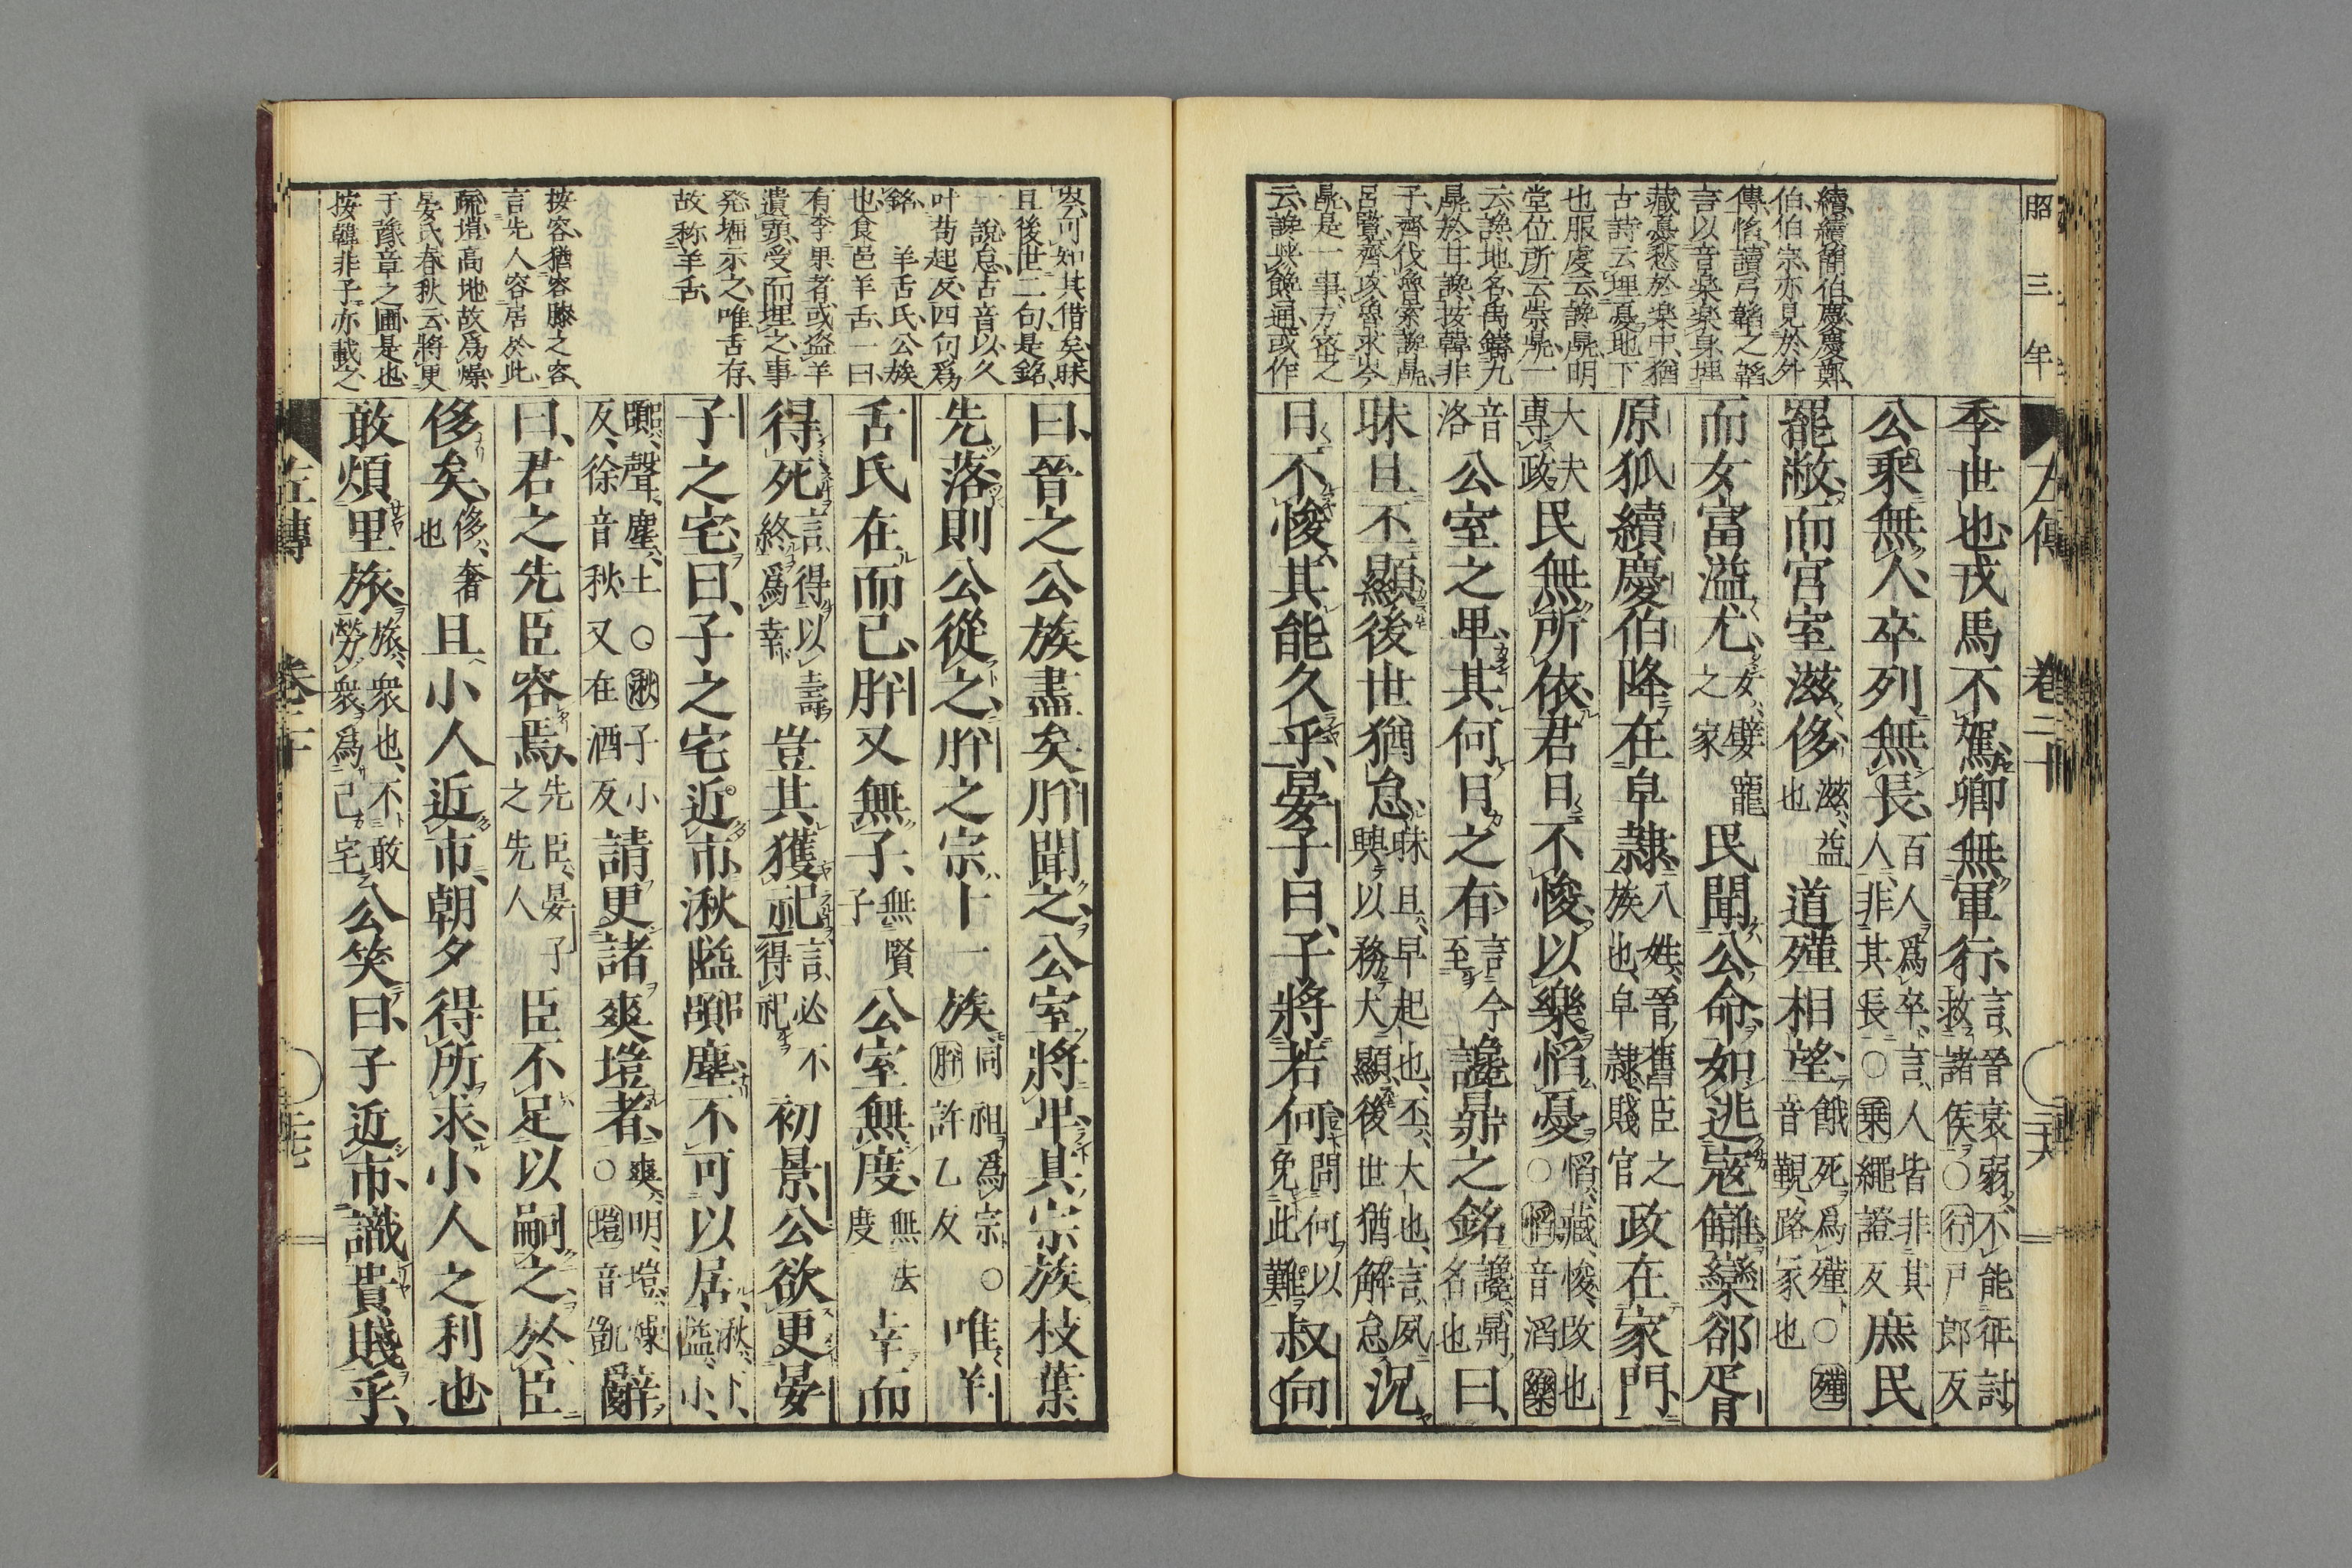 昭三年
續續簡伯慶慶鄭
伯伯宗亦見於外
傳慆讀弓韜之韜
言以音楽楽身埋
藏憂愁於楽中猶
古詩云埋憂地下
也服虔云讒鼎明
堂位所云崇鼎一
云讒地名禹鑄九
鼎於甘讒按韓非
子齊伐魯索讒鼎
呂覽齊攻魯求岑
鼎是一事方密之
云讒與饞通或作
季世也戎馬不駕卿無軍行言晉衰弱不能征討救諸侯○行戸郎反
公乘無人卒列無長百人爲卒言人皆非其人非其長○乗繩證反庶民
罷敝而宮室滋侈滋益也道殣相望餓死爲殣○殣音覲路冢也
而女富溢尤女嬖寵之家民聞公命如逃寇讎欒郤胥
原狐續慶伯降在皁隷八姓晉舊臣之族也皁隷賤官政在家門
大夫專政民無所依君日不悛以樂慆憂慆藏悛改也○慆音滔樂
音洛公室之卑其何日之有言今至讒鼎之銘讒鼎名也曰
昧旦丕顯後世猶怠昧旦早起也丕大也言夙興以務大顯後世猶解怠況
日不悛其能久乎晏子曰子將若何問何以免此難叔向
左傳 卷二十 二十六
岑可知其借矣昧
旦後世二句是銘
一說怠古音以久
叶苟起反四句爲
銘 羊舌氏公族
也食邑羊舌一曰
有李果者或盗羊
遺頭受而埋之事
発堀示之唯舌存
故称羊舌
按容猶容膝之容
言先人容居於此
疏塏高地故爲燥
晏氏春秋云將更
于豫章之圃是也
按韓非子亦載之
曰晉之公族盡矣肸聞之公室將卑其宗族枝葉
先落則公從之肸之宗十一族同祖爲宗○肸許乙反唯羊
舌氏在而已肸又無子無賢子公室無度無法度幸而
得死言得以壽終爲幸豈其獲祀言必不得祀初景公欲更晏
子之宅曰子之宅近市湫隘嚻塵不可以居湫下隘小
嚻聲塵土○湫子小反徐音秋又在酒反請更諸爽塏者爽明塏燥○塏音凱辭
曰君之先臣容焉先臣晏子之先人臣不足以嗣之於臣
侈矣侈奢也且小人近市朝夕得所求小人之利也
敢煩里旅旅衆也不敢勞衆爲己宅公笑曰子近市識貴賤乎
左傳 卷二十 二十七